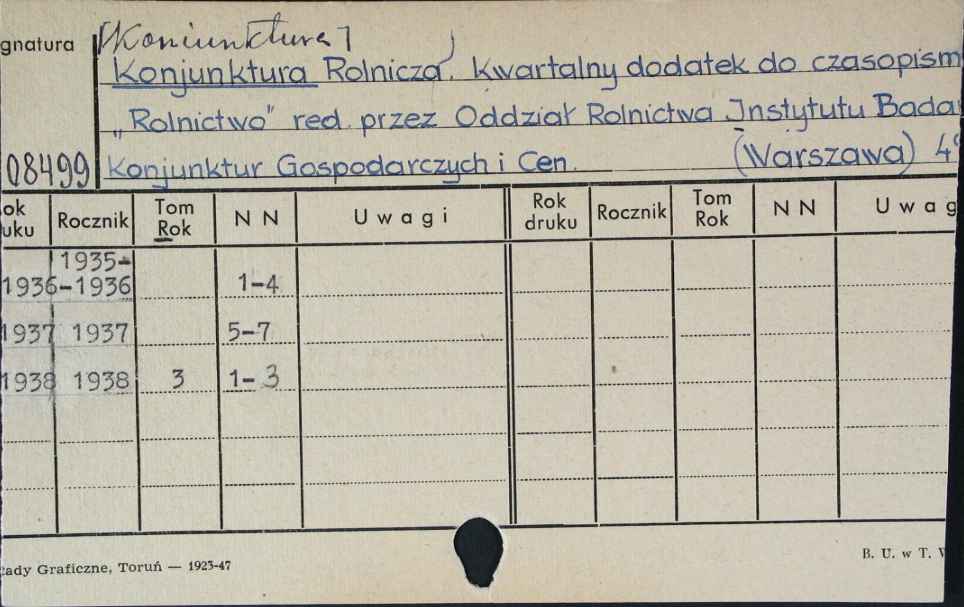 gnatura [Koniunktura]
Konjunktura Rolnicza. Kwartalny dodatek do czasopism
„Rolnictwo" red. przez Oddział Rolnictwa Instytutu Bada
08499 Konjunktur Gospodarczych i Cen. (Warszawa) 4°
ok uku Rocznik Tom Rok N N Uwagi Rok druku Rocznik Tom Rok N N Uwag
1935-
1936-1936 1-4
1937 1937 5-7
1938 1938 3 1-3
ady Graficzne, Toruń — 1923-47 B. U. w T.